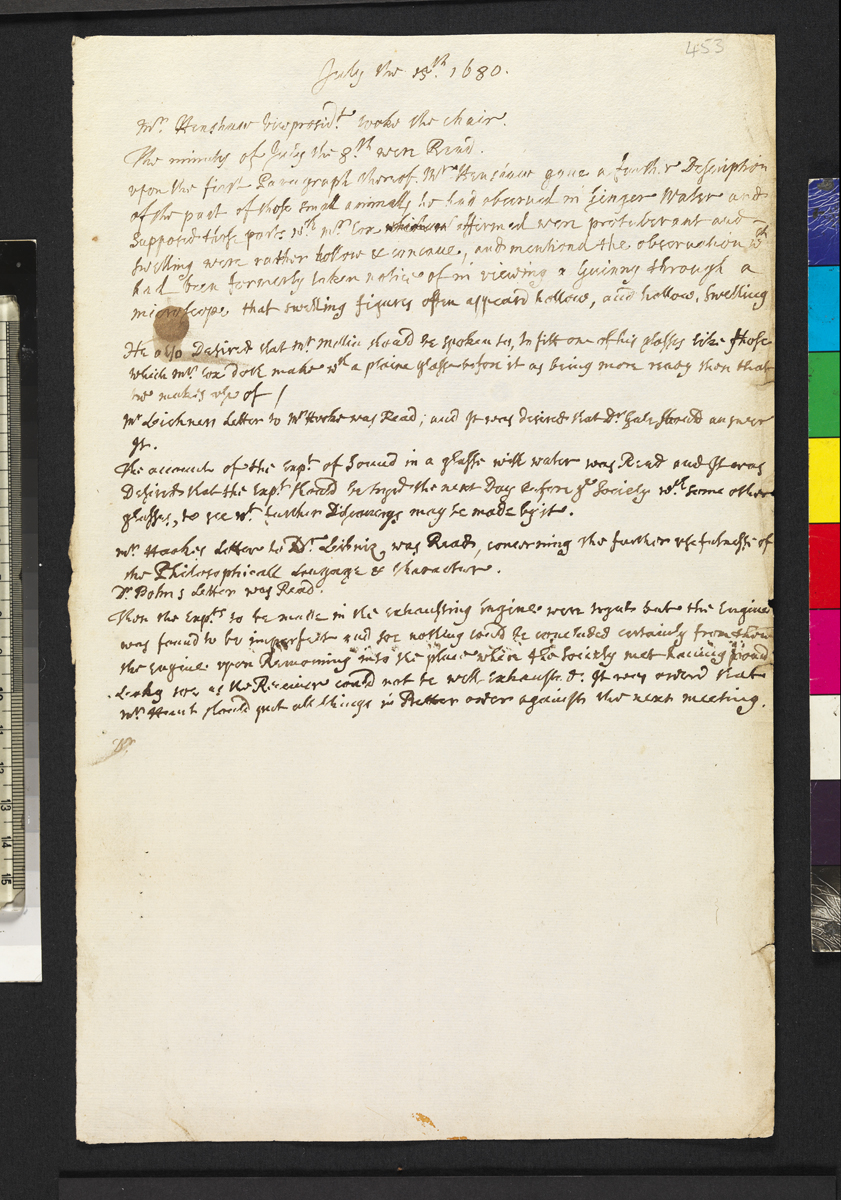 453
July the 15th. 1680.
Mr. Henshaw vicepresidt. tooke the chair.
The minutes of July the 8th were Read.
upon the first Paragraph thereof. Mr Henshaw gave a further Description
of the part of those small animalls he had observed in Ginger Water and
Supposed those parts wch mr. Cox affirmed were protuberant and
swelling were rather hollow & concave, and mentiond the observation wch
had been formerly taken notice of in viewing a Guinny through a
microscope that swelling figures often appeard hollow, and hollow, swelling
He also Desired that mr mellin should be spoken to, to fitt one of his glasses like those
which mr. Cox doth make wth a plaine glasse before it as being more ready then that
we makes use of /
mr Leichners Letter to mr Hooke was Read; and It was desired that Dr. Gale should answer
It.
The account of the Expt. of Sound in a glasse with water was Read and It was
Desired that the Expt. should be tryd the next Day before ye Society wth. some other
glasses, to see wt. further Discoverys may be made by it.
mr. Hookes Letter to Dr. Leibniz, was Read, concerning the further usefulnesse of
the Philosophicall Language & Character.
Dr. Pohns Letter was Read.
Then the Expts. to be made in the exhausting Engine were tryed but the Engine
was found to be imperfect and soe nothing could be concluded certainly from them
the engine upon Removing into the place where the Society met having found
Leaky soe as the Receiver could not be well Exhausted. It was orderd that
mr. Hunt should put all things in Better order against the next meeting.